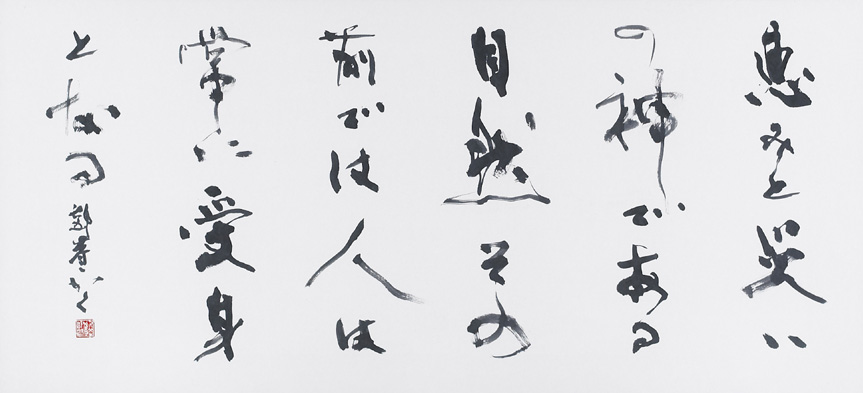 恵みと災い
の神である
自然その
前では人は
常に受身
となる かく